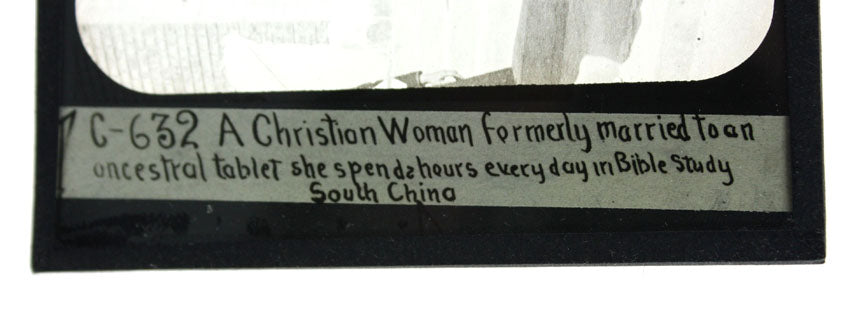 C-632 A Christian Woman formerly married to an
ancestral tablet she spends hours every day in Bible study
South China